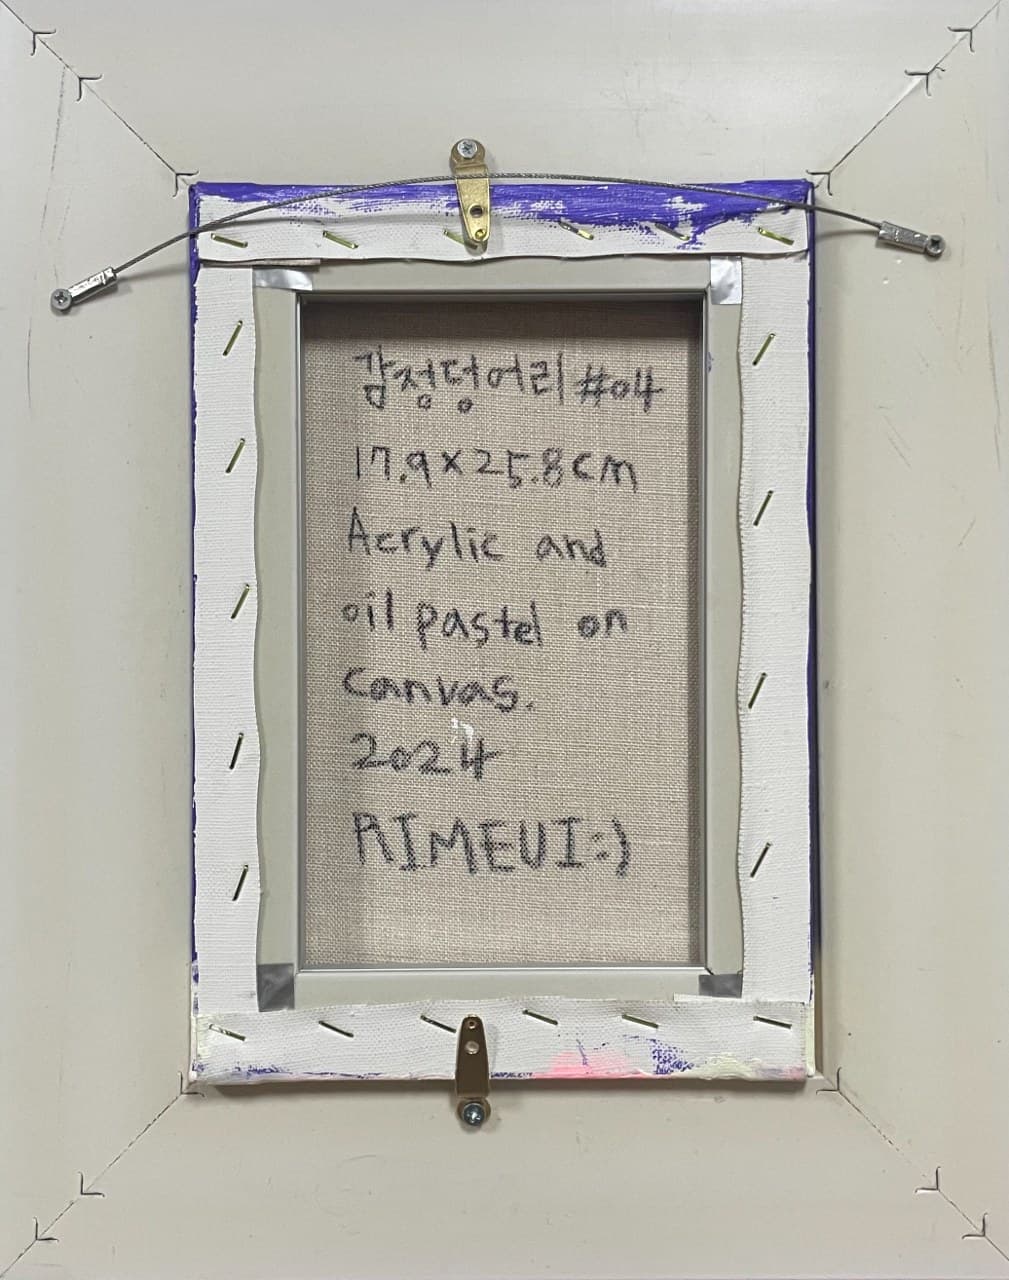 감정덩어리 #04
17.9x25.8cm
Acrylic and
oil pastel on
canvas.
2024
RIMEUI:)